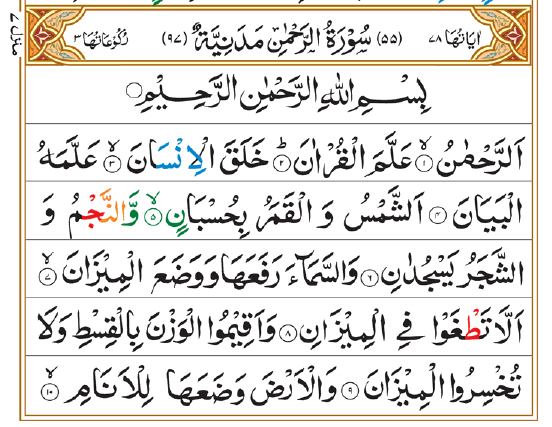 منزل ۷
اٰیَاتُهَا ۷۸ (۵۵) سُوْرَةُ الرَّحْمٰنِ مَدَنِیَّةٌ (۹۷) رُكُوْعَاتُهَا ۳
بِسْمِ اللّٰهِ الرَّحْمٰنِ الرَّحِیْمِ
اَلرَّحْمٰنُ ۙ﴿۱﴾ عَلَّمَ الْقُرْاٰنَ ؕ﴿۲﴾ خَلَقَ الْاِنْسَانَ ۙ﴿۳﴾ عَلَّمَهُ
الْبَیَانَ ﴿۴﴾ اَلشَّمْسُ وَ الْقَمَرُ بِحُسْبَانٍ ۙ﴿۵﴾ وَّالنَّجْمُ وَ
الشَّجَرُ یَسْجُدٰنِ ﴿۶﴾ وَالسَّمَآءَ رَفَعَهَا وَوَضَعَ الْمِیْزَانَ ۙ﴿۷﴾
اَلَّا تَطْغَوْا فِی الْمِیْزَانِ ﴿۸﴾ وَاَقِیْمُوا الْوَزْنَ بِالْقِسْطِ وَلَا
تُخْسِرُوا الْمِیْزَانَ ﴿۹﴾ وَالْاَرْضَ وَضَعَهَا لِلْاَنَامِ ۙ﴿۱۰﴾